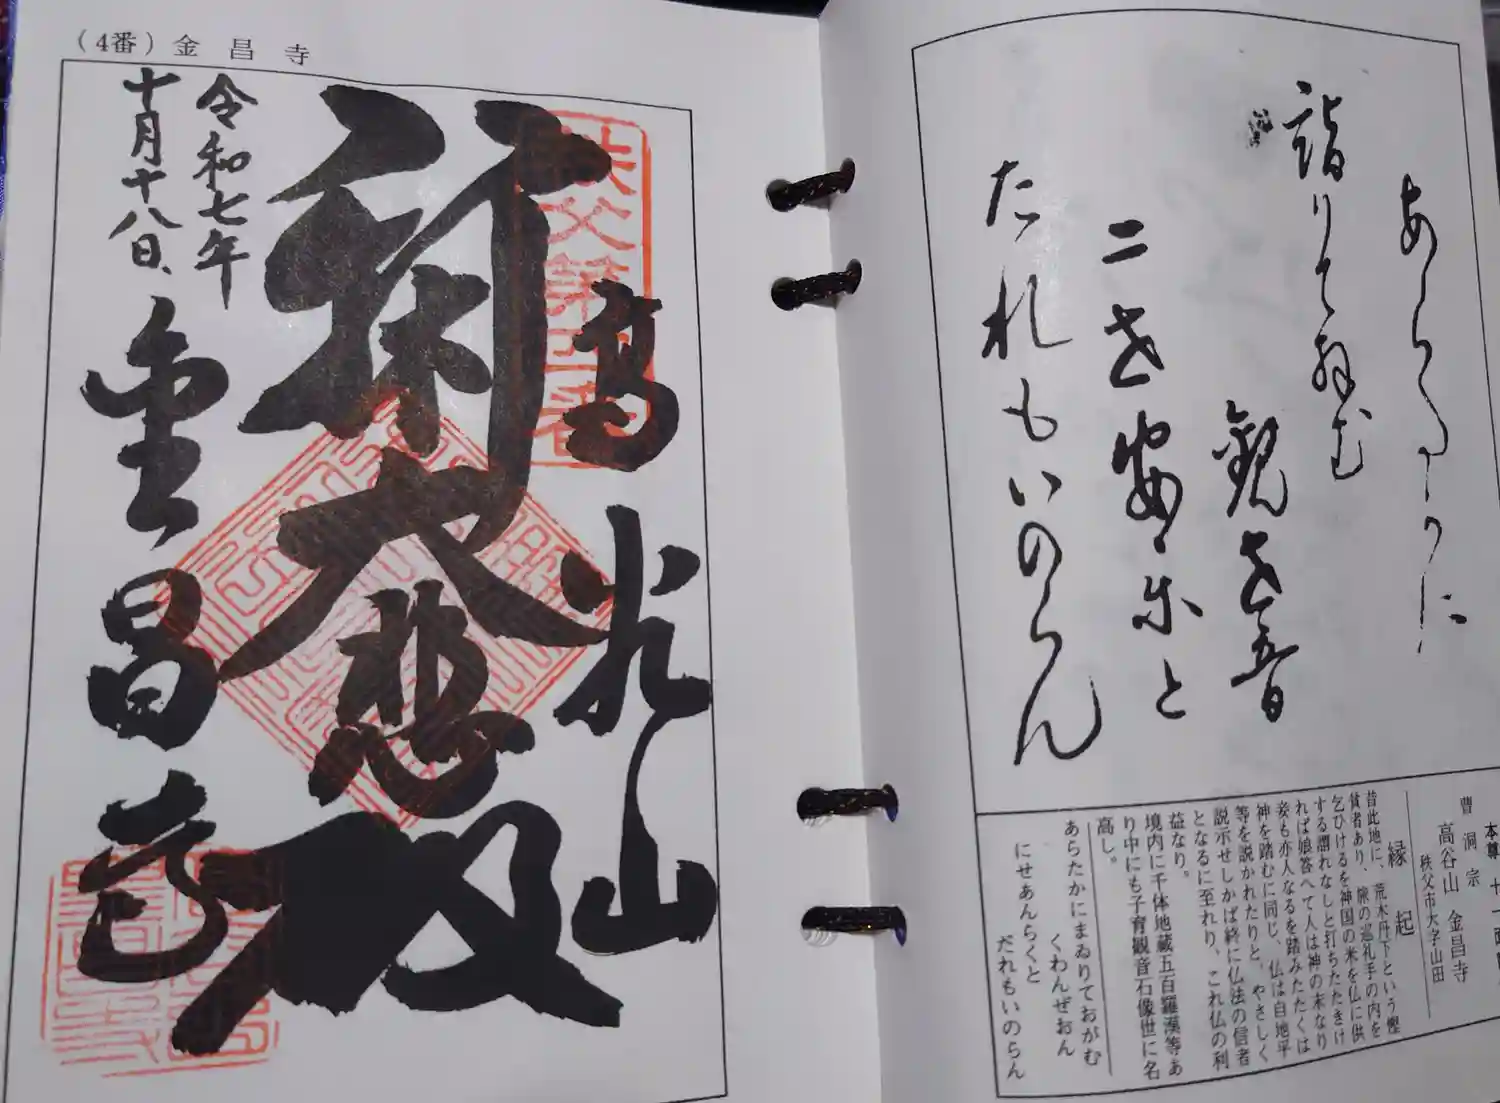 あらたかに
詣りておがむ
観世音
二世安楽と
たれもいのらん
本尊 十一面観
曹洞宗
高谷山 金昌寺
秩父市大字山田
縁起
昔此地に、荒木丹下という慳
貪者あり、旅の巡礼手の内を
乞ひけるを神国の米を仏に供
する謂れなしと打ちたたきけ
れば娘答へて人は神の末なり
妾も亦人なるを踏みたたくは
神を踏むに同じ、仏は自地平
等を説かれたりと、やさしく
説示せしかば終に仏法の信者
となるに至れり、これ仏の利
益なり。
境内に千体地蔵五百羅漢等あ
り中にも子育観音石像世に名
高し。
あらたかにまゐりておがむ
くわんぜおん
にせあんらくと
だれもいのらん
(4番) 金昌寺
秩父第四番
高谷山
大悲殿
令和七年
十月十八日
金昌寺